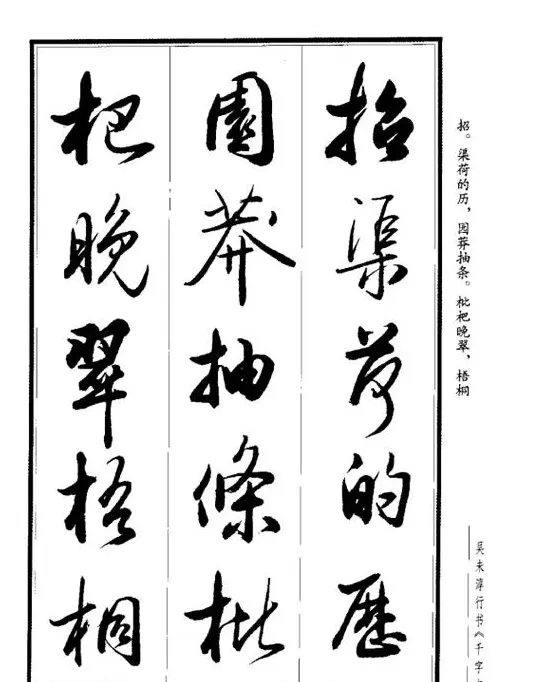 招渠荷的歷
園莽抽條枇
杷晚翠梧桐
招。渠荷的历，园莽抽条。枇杷晚翠，梧桐
吴未淳行书《千字